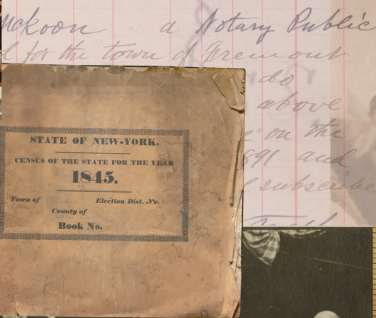 mckoon a Notary Public
d for the town of Fremont
do
above
on the
1891 and
subscribe
STATE OF NEW-YORK.
CENSUS OF THE STATE FOR THE YEAR
1845.
Town of Election Dist. No.
County of
Book No.